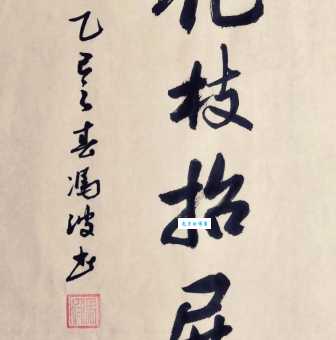 花枝招展
乙巳之春冯波书